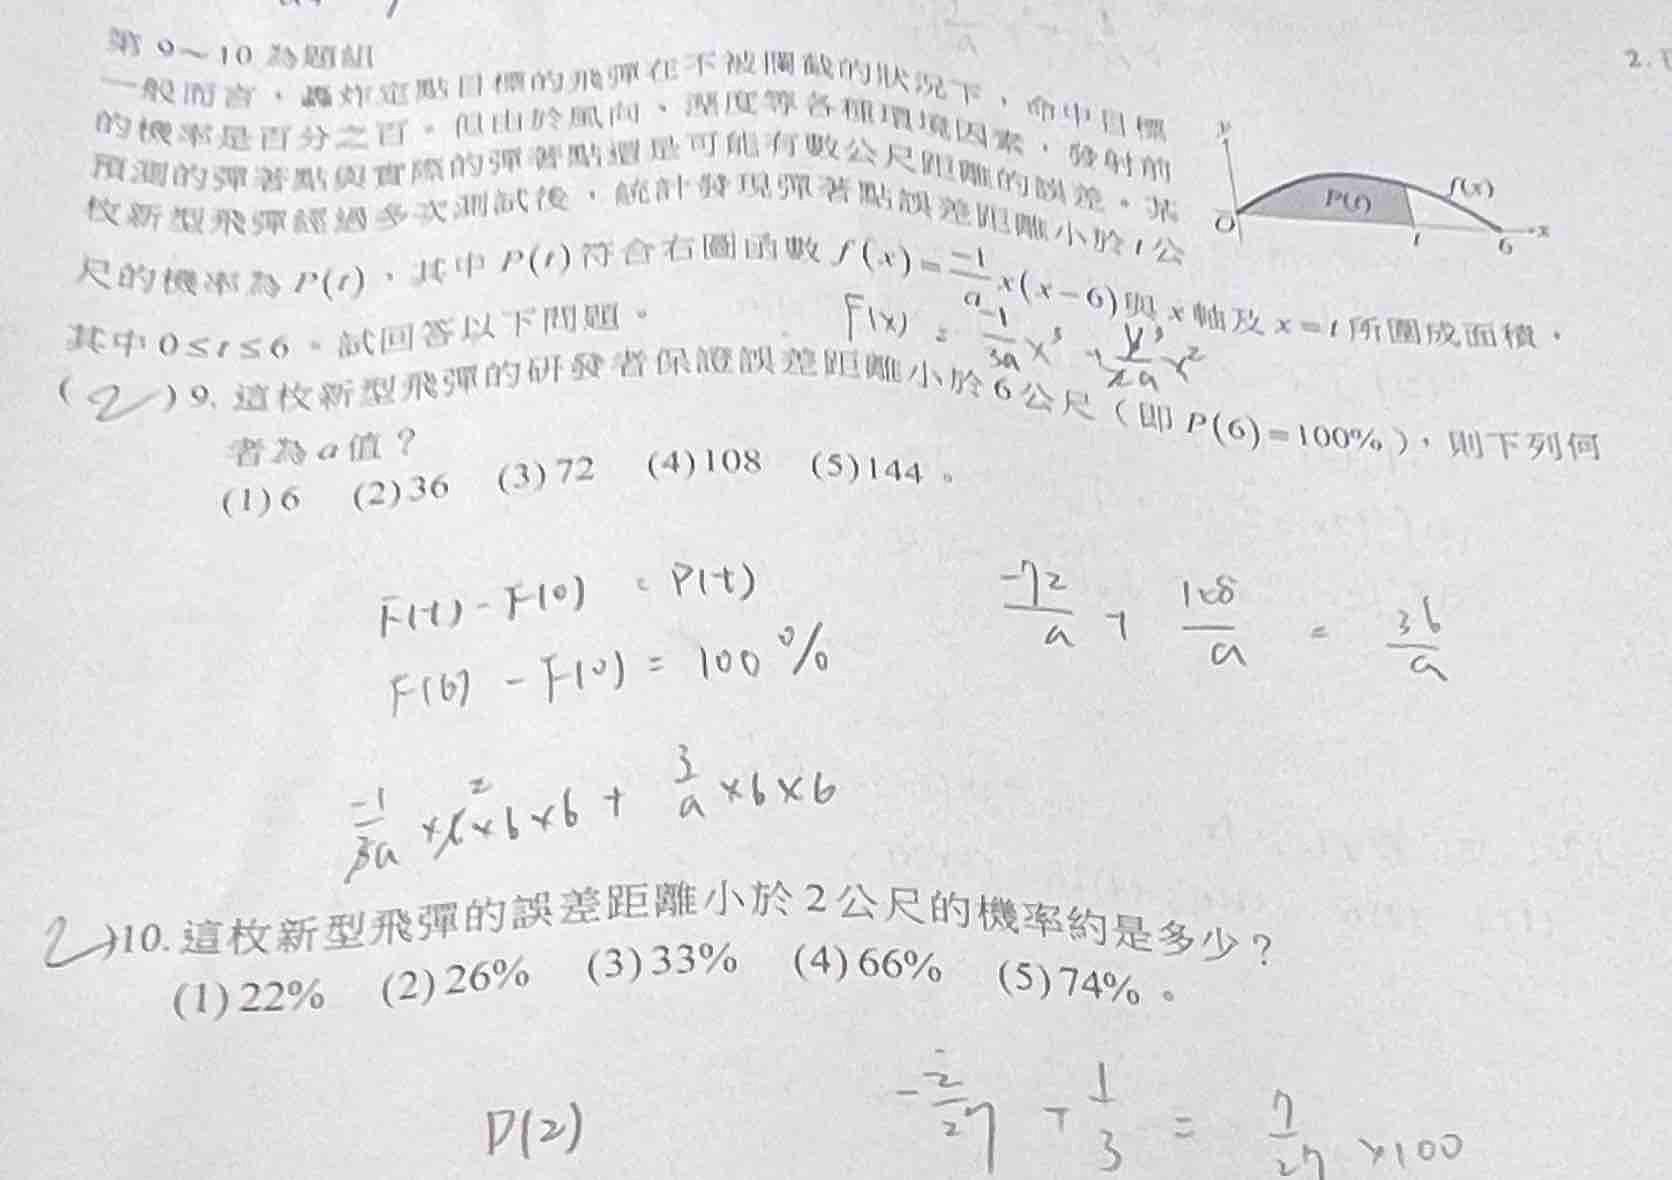 第 9~10 為題組
一般而言，轟炸定點目標的飛彈在不被攔截的狀況下，命中目標
的機率是百分之百。但由於風向、溼度等各種環境因素，發射前
預測的彈著點與實際的彈著點還是可能有數公尺距離的誤差。某
枚新型飛彈經過多次測試後，統計發現彈著點誤差距離小於 t 公
尺的機率為 P(t)，其中 P(t) 符合右圖函數 f(x)=\frac{-1}{a}x(x-6) 與 x 軸及 x=t 所圍成面積，
其中 0≤t≤6。試回答以下問題。
y
f(x)
P(t)
O
t
6
x
2.
F(x) = \frac{-1}{3a}x³ + \frac{6}{2a}x²
(2) 9. 這枚新型飛彈的研發者保證誤差距離小於 6 公尺（即 P(6)=100%），則下列何
者為 a 值？
(1) 6 (2) 36 (3) 72 (4) 108 (5) 144。
F(t) - F(0) = P(t)
F(6) - F(0) = 100%
\frac{-72}{a} + \frac{108}{a} = \frac{36}{a}
\frac{-1}{3a} × 6 × 6 × 6 + \frac{3}{a} × 6 × 6
2
2 )10. 這枚新型飛彈的誤差距離小於 2 公尺的機率約是多少？
(1) 22% (2) 26% (3) 33% (4) 66% (5) 74%。
P(2)
-\frac{2}{27} + \frac{1}{3} = \frac{7}{27} ×100